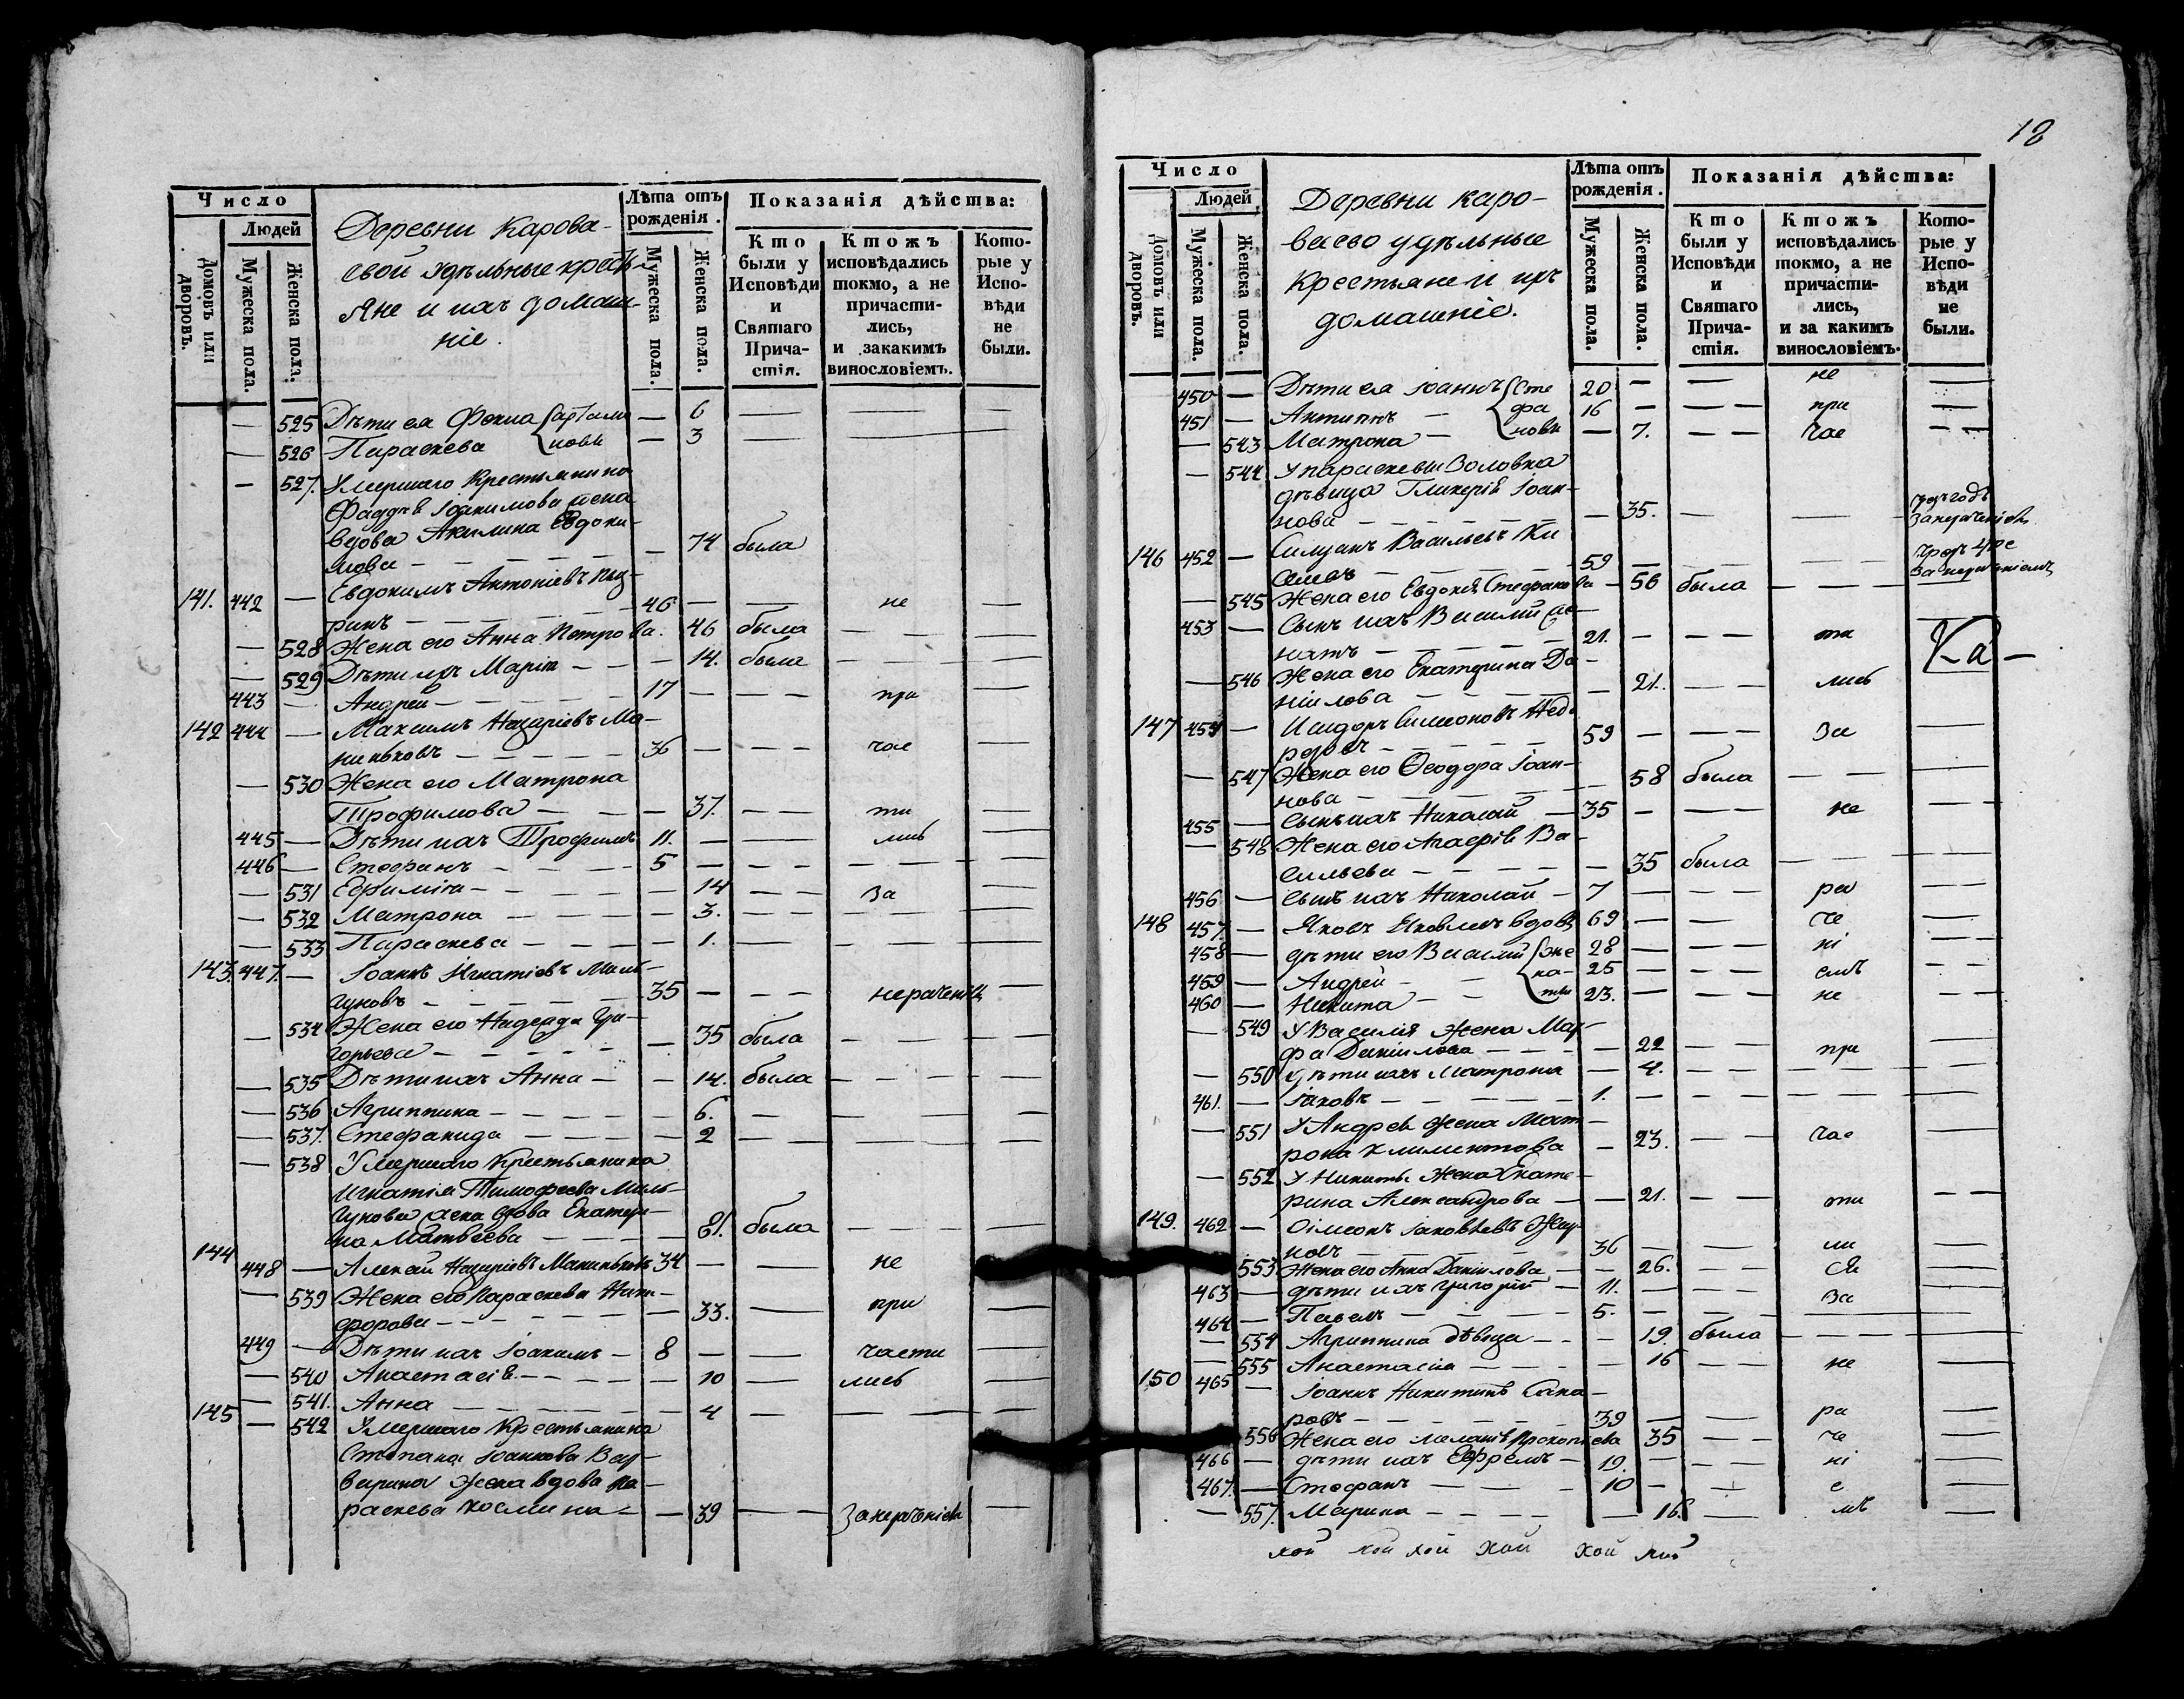 Число
Людей
Домовъ или дворовъ.
Мужеска пола.
Женска пола.
Деревни Карова-
евой удѣльные кресть-
яне и ихъ домаш-
ніе.
Лѣта отъ рожденія.
Мужеска пола.
Женска пола.
Показанія дѣйства:
Кто были у Исповѣди и Святаго Причастія.
Ктожъ исповѣдались токмо, а не причастились, и закакимъ винословіемъ.
Которые у Исповѣди не были.
— 525 Дѣти ея Фекла — 6 — — —
— 526 Параскева — 3 — — —
— 527. Умершаго Крестьянина
Фаддѣя Іоакимова жена
вдова Акилина Евдоки-
мова — — 74 была
141. 442 — Евдокимъ Антоніевъ
46 — — не —
— 528 Жена его Анна Петрова. 46 была — —
— 529 Дѣти ихъ Марія — — 14. была — —
443 — Андрей — 17 — — при —
142 444 — Максимъ Назаріевъ Ма-
ниньковъ — 36 — — час —
— 530 Жена его Матрона
Трофимова — — 37. — — ти —
445 — Дѣти ихъ Трофимъ 11. — — лись —
446 — Стефанъ — 5 — — — —
— 531 Ефимія — — 14 — — за —
— 532 Матрона — — 3. — — — —
— 533 Параскева — — 1. — — — —
143. 447. — Іоаннъ Игнатіевъ Миль-
гуновъ — 35 — — нерачені —
— 534 Жена его Надежда Гри-
горьева — — 35 была — — —
— 535 Дѣти ихъ Анна — — 14. была — — —
— 536 Агриппина — — 6. — — —
— 537. Стефанида — — 2 — — —
— 538 Умершаго Крестьянина
Игнатія Тимофеева Миль-
гунова жена вдова Екатери-
на Матвѣева — — 81. была — —
144 448 — Алексѣй Назаріевъ Маниньковъ 34 — — не
— 539 Жена его Параскева Ники-
форова — — 33. — при —
449 — Дѣти ихъ Іоакимъ — 8 — — части —
— 540 Анастасія — — 10 — лись —
— 541. Анна — — 4 — — —
145 — 542 Умершаго Крестьянина
Степана Іоаннова
жена вдова Па-
раскева Космина — — 39 — — За нерачѣніемъ —
18
Число
Людей
Домовъ или дворовъ.
Мужеска пола.
Женска пола.
Деревни Каро-
ваево удѣльные
крестьяне и ихъ
домашніе.
Лѣта отъ рожденія.
Мужеска пола.
Женска пола.
Показанія дѣйства:
Кто были у Исповѣди и Святаго Причастія.
Ктожъ исповѣдались токмо, а не причастились, и за какимъ винословіемъ.
Которые у Исповѣди не были.
450 — Дѣти ея Іоаннъ Сте 20 — — не —
451 — Антипъ — фа 16 — — при —
— 543 Матрона — новы — 7. — — час — —
— 544 У Параскевы Золовка
дѣвица Гликерія Іоан-
нова — — 35. — —
146 452 — Силуанъ Васильевъ
59 — —
— 545 Жена его Евдокія Стефанова — 56 была — —
453 — Сынъ ихъ Василій же-
натъ — 21. — — — ти
Ка —
— 546 Жена его Екатерина Да-
ніилова — — 21. — — лись
147 454 — Исидоръ Симеоновъ
59 — — — За —
— 547 Жена его Ѳеодора Іоан-
нова — — 58 была — — —
455 — Сынъ ихъ Николай — 35 — — — не — —
— 548 Жена его Агафія Ва-
сильева — — 35 была — — —
456 — Сынъ ихъ Николай — 7 — — — ра — —
148 457. — Яковъ Яковлевъ вдовъ 69 — — че — —
458 — дѣти его Василій же 28 — — — ні — —
459 — Андрей — на- 25 — — — емъ — —
460 — Никита — ты 23. — — — не — —
— 549 У Василія жена Мар-
фа Даніилова — — 22 — — при —
— 550 дѣти ихъ Матрона — 4. — — — —
461. — Іаковъ — 1. — — — — —
— 551 У Андрея жена Мат-
рона Климентова — 23. — — час —
— 552 У Никиты Жена Екате-
рина Александрова — — 21. — — ти — —
149. 462 — Симеонъ Іаковлевъ
36 — — ли —
553 Жена его Анна Даніилова — — 26. — — ся —
463 — дѣти ихъ Григорій — 11. — — за —
464 — Павелъ — 5. — — —
— 554 Агриппина дѣвица — — 19. была — — —
— 555 Анастасія — — 16 — — не —
150 465 — Іоаннъ Никитинъ
39 — — ра —
556 Жена его Меланія Прокопіева 35 — — че —
466 — дѣти ихъ Ефремъ — 19. — — ні —
467. — Стефанъ — 10 — — е —
— 557. Марина — — 16. — мъ —